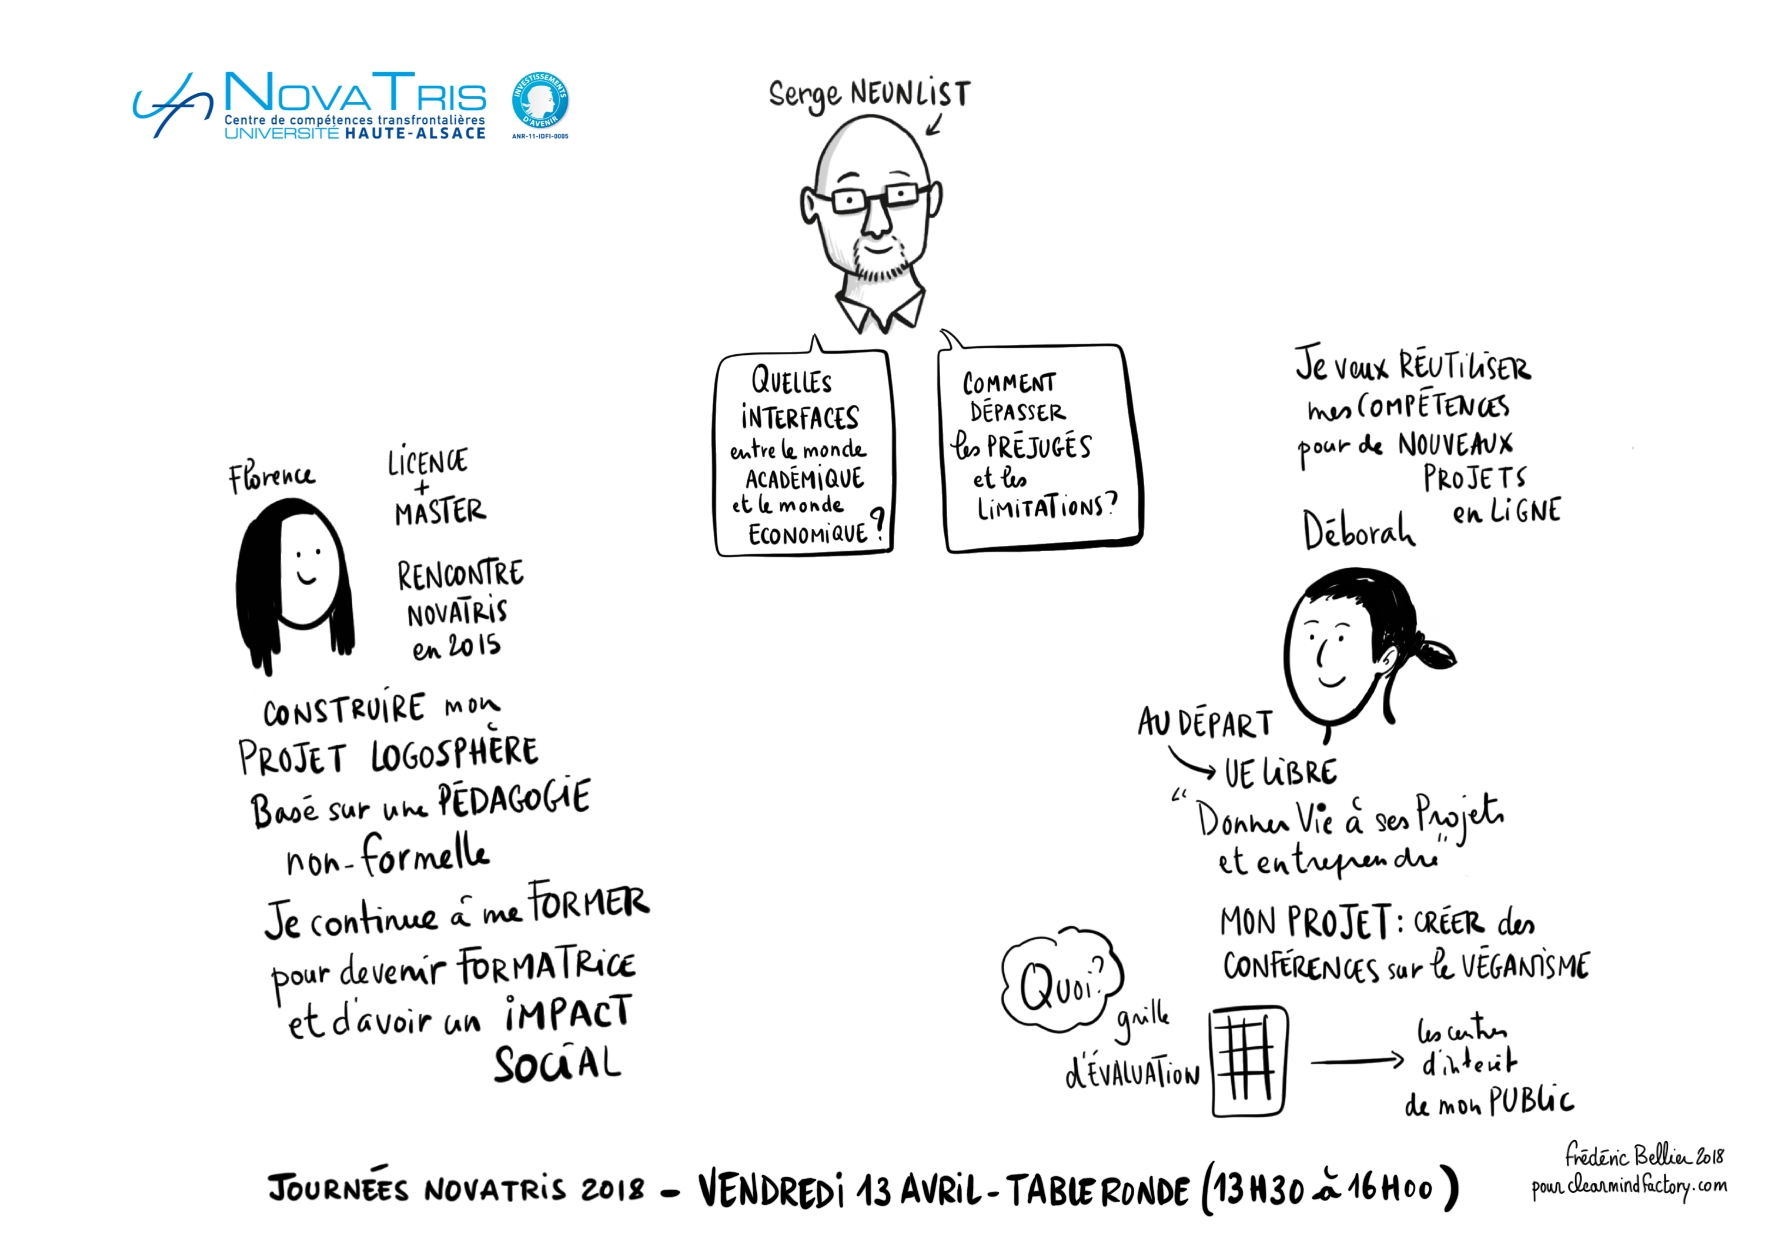 NOVATRIS
Centre de compétences transfrontalières
UNIVERSITÉ HAUTE-ALSACE
INVESTISSEMENTS
D'AVENIR
ANR-11-IDFI-0005
Serge NEUNLIST
QUELLES
INTERFACES
entre le monde
ACADÉMIQUE
et le monde
ECONOMIQUE?
COMMENT
DÉPASSER
les PRÉJUGÉS
et les
LIMITATIONS?
Florence
LICENCE
+
MASTER
RENCONTRE
NOVATRIS
en 2015
CONSTRUIRE mon
PROJET LOGOSPHÈRE
Basé sur une PÉDAGOGIE
non-formelle
Je continue à me FORMER
pour devenir FORMATRICE
et d'avoir un IMPACT
SOCIAL
Je veux RÉUTILISER
mes COMPÉTENCES
pour de NOUVEAUX
PROJETS
en LIGNE
Déborah
AU DÉPART
UE LIBRE
"Donner Vie à ses Projets
et entreprendre"
MON PROJET: CRÉER des
CONFÉRENCES sur le VÉGANISME
Quoi?
grille
d'ÉVALUATION
les centres
d'interêt
de mon PUBLIC
JOURNÉES NOVATRIS 2018 - VENDREDI 13 AVRIL - TABLE RONDE (13H30 à 16H00)
frédéric Bellier 2018
pour clearmindfactory.com